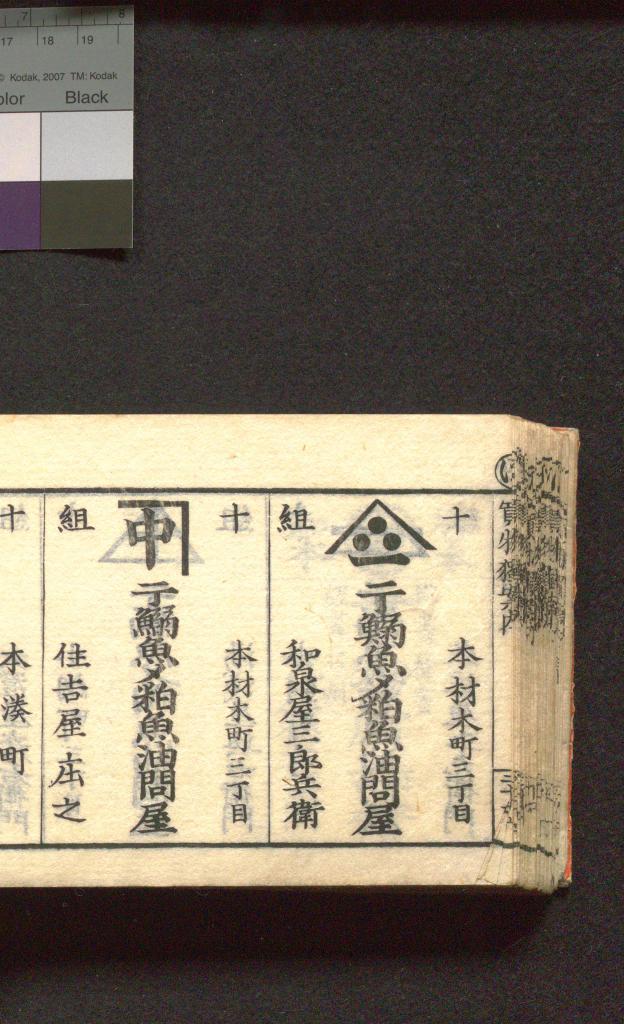 7 8
17 18 19
© Kodak, 2007 TM: Kodak
olor Black
十
組
本材木町三丁目
干鰯魚〆粕魚油問屋
和泉屋三郎兵衛
十
組
中
本材木町三丁目
干鰯魚〆粕魚油問屋
住吉屋庄之
十
本湊町